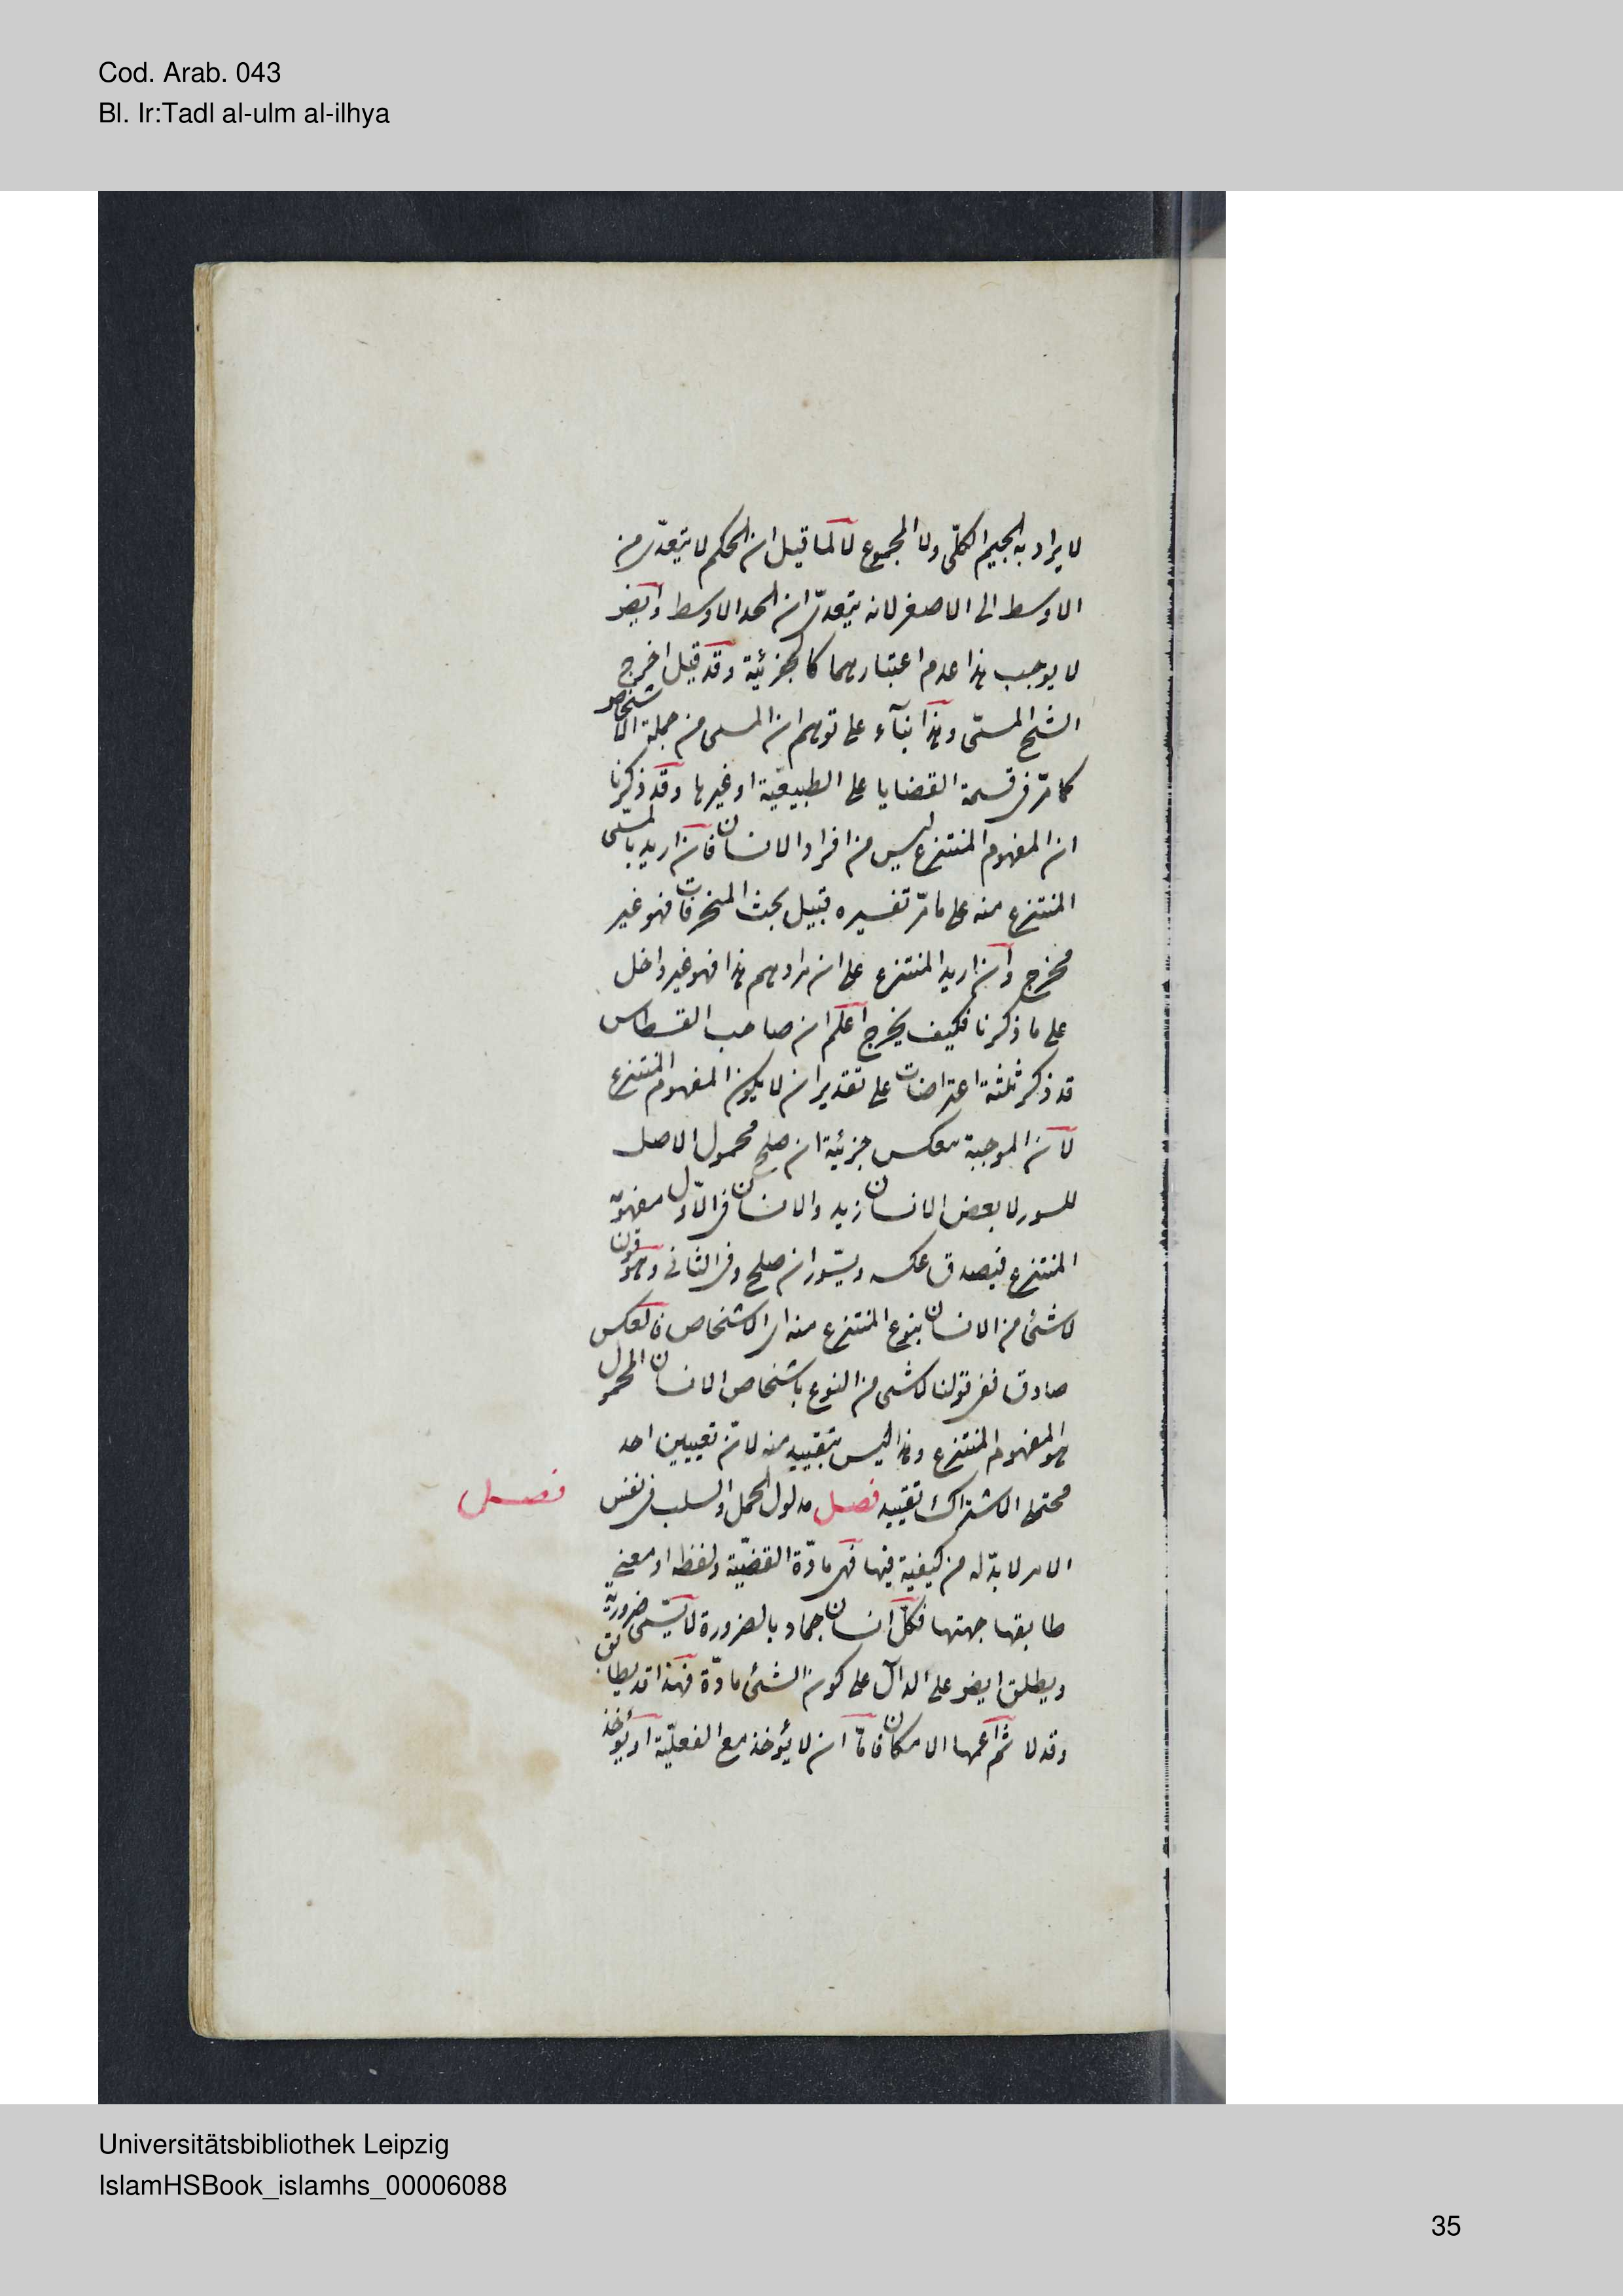 Cod. Arab. 043
Bl. Ir:Tadl al-ulm al-ilhya
لا يراد به الجيم الكلّى ولا المجموع لا لما قيل ان الحكم لا يتعدّى من
الاوسط الى الاصغر لانه يتعدّى ان اتحد الاوسط وايضـ
لا يوجب هذا عدم اعتبارهما كالجزئية وقد قيل اخرج
الشيخ المسمّى وهذا بنآء على توهم ان المسمى من جملة الاشخاص
كما مرّ فى قسمة القضايا على الطبيعيّة او غيرها وقد ذكرنا
ان المفهوم المنتزع ليس من افراد الانسان فان اريد بالمسمّى
المنتزع منه على ما مرّ تفسيره قبيل بحث المنحرفات فهو غير
مخرج وان اريد المنتزع على ان مرادهم هذا فهو غير داخل
على ما ذكرنا فكيف يخرج اعلم ان صاحب القسطاس
قد ذكر ثلثة اعتراضات على تقدير ان لا يكون المفهوم المنتزع
لان الموجبة تنعكس جزئية ان صلح محمول الاصل
للسور لا بعض الانسان زيد والانسان فى الاوّل مفهومه
المنتزع فيصدق عكسه ويسّور ان صلح وفى الثانى وهو قولنا
لا شئ من الانسان بنوع المنتزع منه اى الاشخاص فالعكس
صادق ففى قولنا لا شى من النوع باشخاص الانسان المحمول
هو المفهوم المنتزع وهذا ليس بتقييد منه لان تعيين احد
محتملى الاشتراك تقييد فصل مدلول الحمل والسلب فى نفس
فصل
الامر لا بدّ له من كيفية فيها فهى مادّة القضيّة ولفظه او معنى
طابقها جهتها فكلّ انسان جماد بالضرورة لا يسّمى ضرورية
ويطلق ايضـ على الدالّ على كون الشئ مادّة فهذا قد يطابق
وقد لا ثم اعمها الامكان فامّا ان لا يؤخذ مع الفعليّة او يؤخذ
Universitätsbibliothek Leipzig
IslamHSBook_islamhs_00006088
35